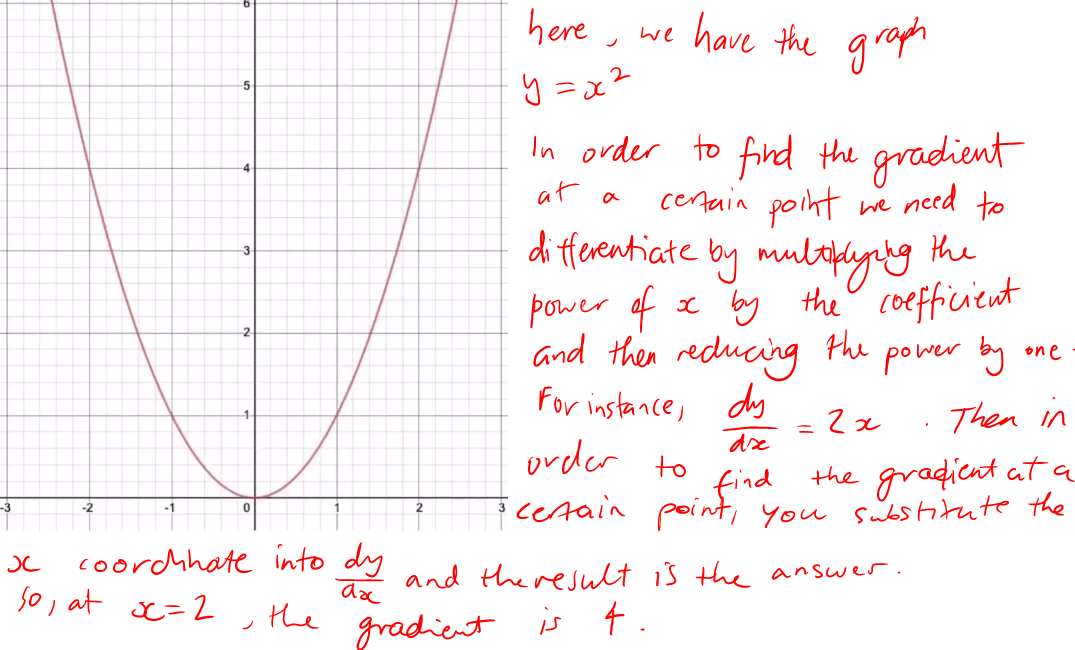 6
5
4
3
2
1
-3 -2 -1 0 1 2 3
here, we have the graph
y = x²
In order to find the gradient
at a certain point we need to
differentiate by multiplying the
power of x by the coefficient
and then reducing the power by one.
For instance, dy/dx = 2x. Then in
order to find the gradient at a
certain point, you substitute the
x coordinate into dy/dx and the result is the answer.
So, at x=2, the gradient is 4.